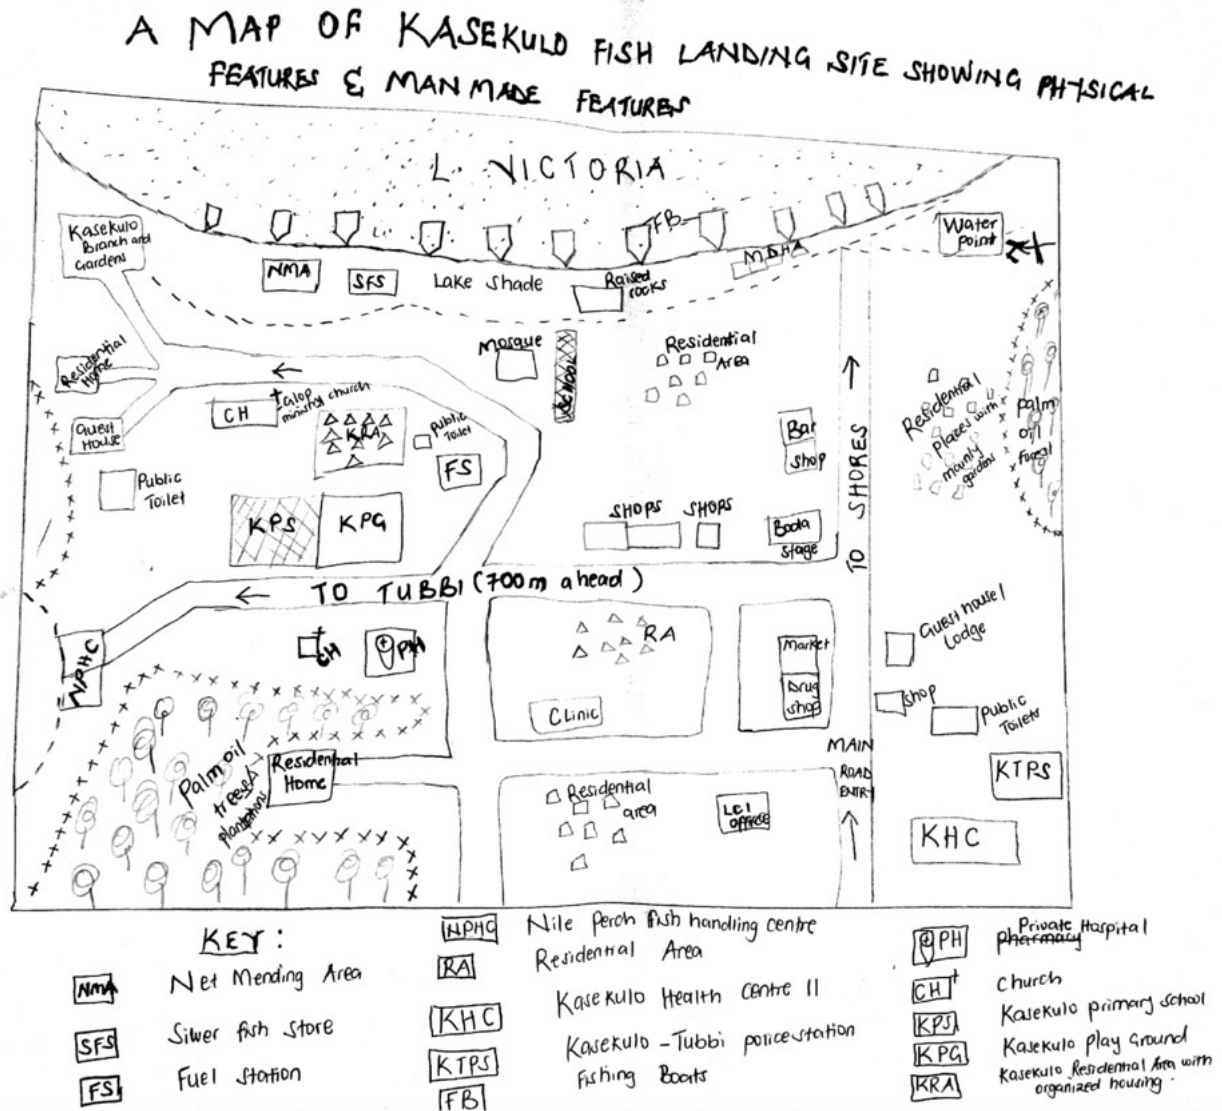 A MAP OF KASEKULO FISH LANDING SITE SHOWING PHYSICAL
FEATURES & MAN MADE FEATURES
L. VICTORIA
Kasekulo
Branch and
Gardens
NMA
SFS
Lake Shade
Raised
rocks
FB
MDHA
Water
point
Residential
Home
Guest
House
Public
Toilet
CH
ministry church
KRA
Public
Toilet
FS
KPS
KPG
Mosque
SCHOOL
Residential
Area
Bar
Shop
SHOPS
SHOPS
Boda
stage
TO SHORES
Residential
places with
mainly
gardens
palm
oil
forest
TO TUBBI (700m ahead)
NPHC
CH
PH
RA
Clinic
Market
Drug
shop
Guest house/
Lodge
shop
Public
Toilets
KTPS
KHC
MAIN
ROAD
ENTRY
Palm oil
trees
plantations
Residential
Home
Residential
area
LC1
office
KEY:
NMA Net Mending Area
SFS Silver fish store
FS Fuel Station
NPHC Nile Perch fish handling centre
RA Residential Area
KHC Kasekulo Health Centre II
KTPS Kasekulo - Tubbi police station
FB Fishing Boats
PH Private Hospital
pharmacy
CH Church
KPS Kasekulo primary school
KPG Kasekulo play Ground
KRA Kasekulo Residential Area with
organized housing.